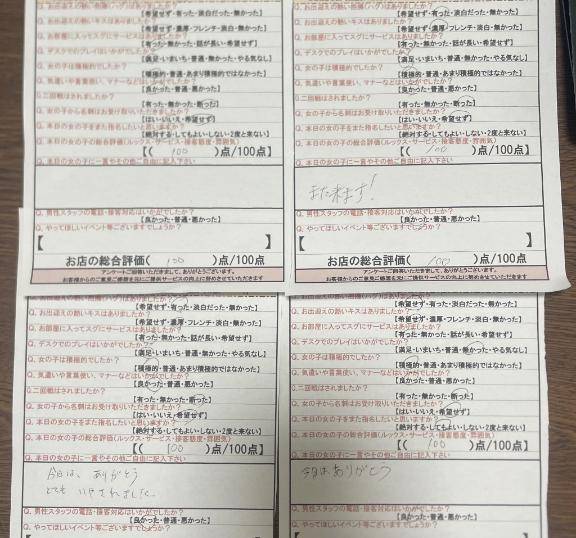 Q. お出迎えの熱い抱擁(ハグ)はありましたか？
【希望せず・有った・淡白だった・無かった】
Q. お出迎えの熱いキスはありましたか？
【希望せず・濃厚・フレンチ・淡白・無かった】
Q. お部屋に入ってスグにサービスはありましたか？
【有った・無かった・話が長い・希望せず】
Q. デスクでのプレイはいかがでしたか？
【満足・いまいち・普通・無かった・やる気なし】
Q. 女の子は積極的でしたか？
【積極的・普通・あまり積極的ではなかった】
Q. 気遣いや言葉使い、マナーなどはいかがでしたか？
【良かった・普通・悪かった】
Q. 二回戦はされましたか？
【有った・無かった・断った】
Q. 女の子から名刺はお受け取りいただきましたか？
【はい・いいえ・希望せず】
Q. 本日の女の子をまた指名したいと思いますか？
【絶対する・してもよい・しない・2度と来ない】
Q. 本日の女の子の総合評価(ルックス・サービス・接客態度・雰囲気)
【( 100 )点/100点】
Q. 本日の女の子に一言やその他ご自由に記入下さい
Q. 男性スタッフの電話・接客対応はいかがでしたか？
【良かった・普通・悪かった】
Q. やってほしいイベント等ございますでしょうか？
【 】
お店の総合評価( 100 )点/100点
アンケートご回答いただきまして、ありがとうございます。
お客様からのご意見ご感想を元にご提供サービスの向上に努めさせていただきます
【希望せず・有った・淡白だった・無かった】
Q. お出迎えの熱いキスはありましたか？
【希望せず・濃厚・フレンチ・淡白・無かった】
Q. お部屋に入ってスグにサービスはありましたか？
【有った・無かった・話が長い・希望せず】
Q. デスクでのプレイはいかがでしたか？
【満足・いまいち・普通・無かった・やる気なし】
Q. 女の子は積極的でしたか？
【積極的・普通・あまり積極的ではなかった】
Q. 気遣いや言葉使い、マナーなどはいかがでしたか？
【良かった・普通・悪かった】
Q. 二回戦はされましたか？
【有った・無かった・断った】
Q. 女の子から名刺はお受け取りいただきましたか？
【はい・いいえ・希望せず】
Q. 本日の女の子をまた指名したいと思いますか？
【絶対する・してもよい・しない・2度と来ない】
Q. 本日の女の子の総合評価(ルックス・サービス・接客態度・雰囲気)
【( 100 )点/100点】
Q. 本日の女の子に一言やその他ご自由に記入下さい
また来ます！
Q. 男性スタッフの電話・接客対応はいかがでしたか？
【良かった・普通・悪かった】
Q. やってほしいイベント等ございますでしょうか？
【 】
お店の総合評価( 100 )点/100点
アンケートご回答いただきまして、ありがとうございます。
お客様からのご意見ご感想を元にご提供サービスの向上に努めさせていただきます
【希望せず・有った・淡白だった・無かった】
Q. お出迎えの熱いキスはありましたか？
【希望せず・濃厚・フレンチ・淡白・無かった】
Q. お部屋に入ってスグにサービスはありましたか？
【有った・無かった・話が長い・希望せず】
Q. デスクでのプレイはいかがでしたか？
【満足・いまいち・普通・無かった・やる気なし】
Q. 女の子は積極的でしたか？
【積極的・普通・あまり積極的ではなかった】
Q. 気遣いや言葉使い、マナーなどはいかがでしたか？
【良かった・普通・悪かった】
Q. 二回戦はされましたか？
【有った・無かった・断った】
Q. 女の子から名刺はお受け取りいただきましたか？
【はい・いいえ・希望せず】
Q. 本日の女の子をまた指名したいと思いますか？
【絶対する・してもよい・しない・2度と来ない】
Q. 本日の女の子の総合評価(ルックス・サービス・接客態度・雰囲気)
【( 100 )点/100点】
Q. 本日の女の子に一言やその他ご自由に記入下さい
今日は、ありがとう
とても いやされました。
Q. 男性スタッフの電話・接客対応はいかがでしたか？
【良かった・普通・悪かった】
Q. やってほしいイベント等ございますでしょうか？
【希望せず・有った・淡白だった・無かった】
Q. お出迎えの熱いキスはありましたか？
【希望せず・濃厚・フレンチ・淡白・無かった】
Q. お部屋に入ってスグにサービスはありましたか？
【有った・無かった・話が長い・希望せず】
Q. デスクでのプレイはいかがでしたか？
【満足・いまいち・普通・無かった・やる気なし】
Q. 女の子は積極的でしたか？
【積極的・普通・あまり積極的ではなかった】
Q. 気遣いや言葉使い、マナーなどはいかがでしたか？
【良かった・普通・悪かった】
Q. 二回戦はされましたか？
【有った・無かった・断った】
Q. 女の子から名刺はお受け取りいただきましたか？
【はい・いいえ・希望せず】
Q. 本日の女の子をまた指名したいと思いますか？
【絶対する・してもよい・しない・2度と来ない】
Q. 本日の女の子の総合評価(ルックス・サービス・接客態度・雰囲気)
【( 100 )点/100点】
Q. 本日の女の子に一言やその他ご自由に記入下さい
今日はありがとう
Q. 男性スタッフの電話・接客対応はいかがでしたか？
【良かった・普通・悪かった】
Q. やってほしいイベント等ございますでしょうか？